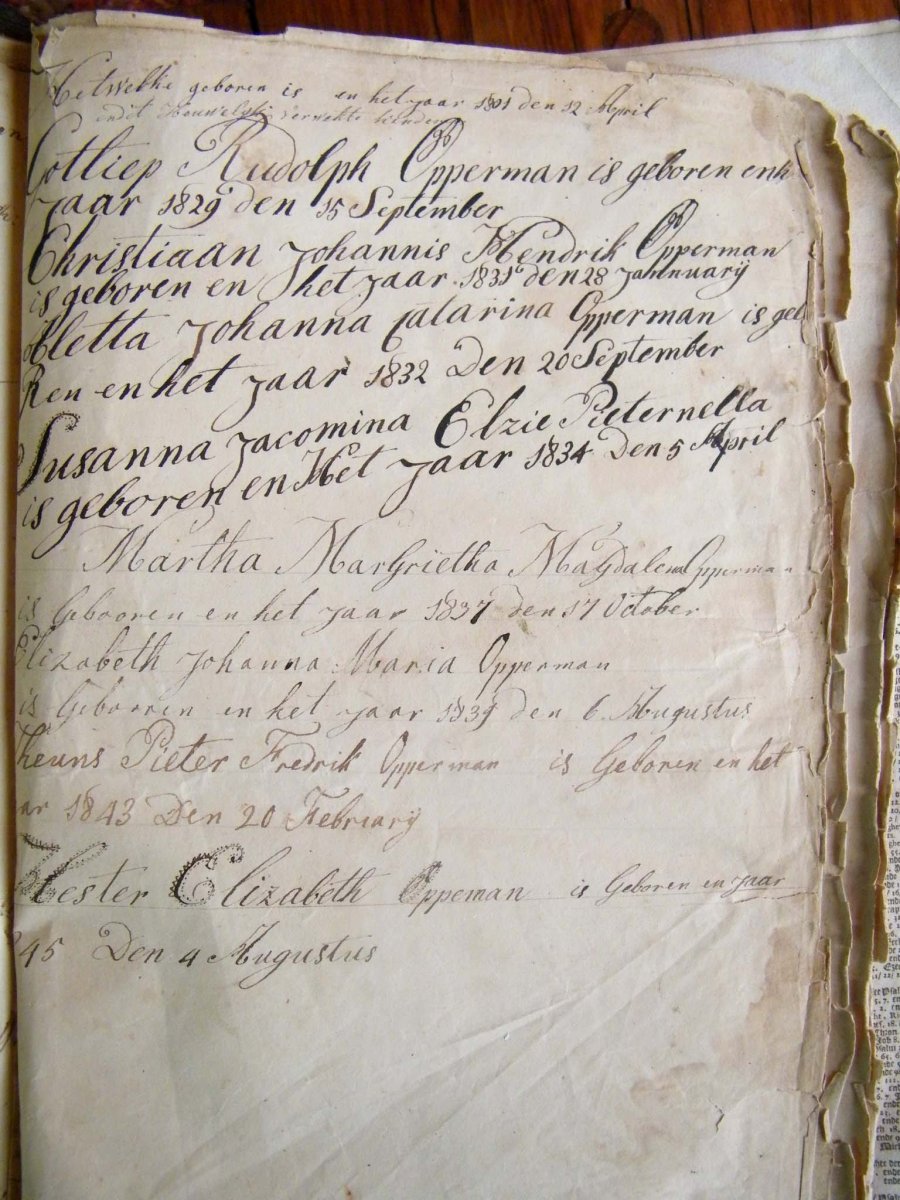 Hetwelke geboren is en het jaar 1801 den 12 April
endit Houwelyk verwekte kinderen
Gottliep Rudolph Opperman is geboren en h
Jaar 1829 den 15 September
Christiaan Johannis Hendrik Opperman
is geboren en het Jaar 1831 den 28 Jannuarij
Aletta Johanna Catarina Opperman is geb
Ren en het Jaar 1832 Den 20 September
Susanna Jacomina Elzie Pieternella
is geboren en Het Jaar 1834 Den 5 April
Martha Margrietha Magdalena Opperman
is Gebooren en het Jaar 1837 den 17 October
Elizabeth Johanna Maria Opperman
is Gebooren en het Jaar 1839 den 6 Augustus
Theuns Pieter Fredrik Opperman is Geboren en het
ar 1843 Den 20 Februarij
Hester Elizabeth Oppeman is Geboren en Jaar
45 Den 4 Augustus